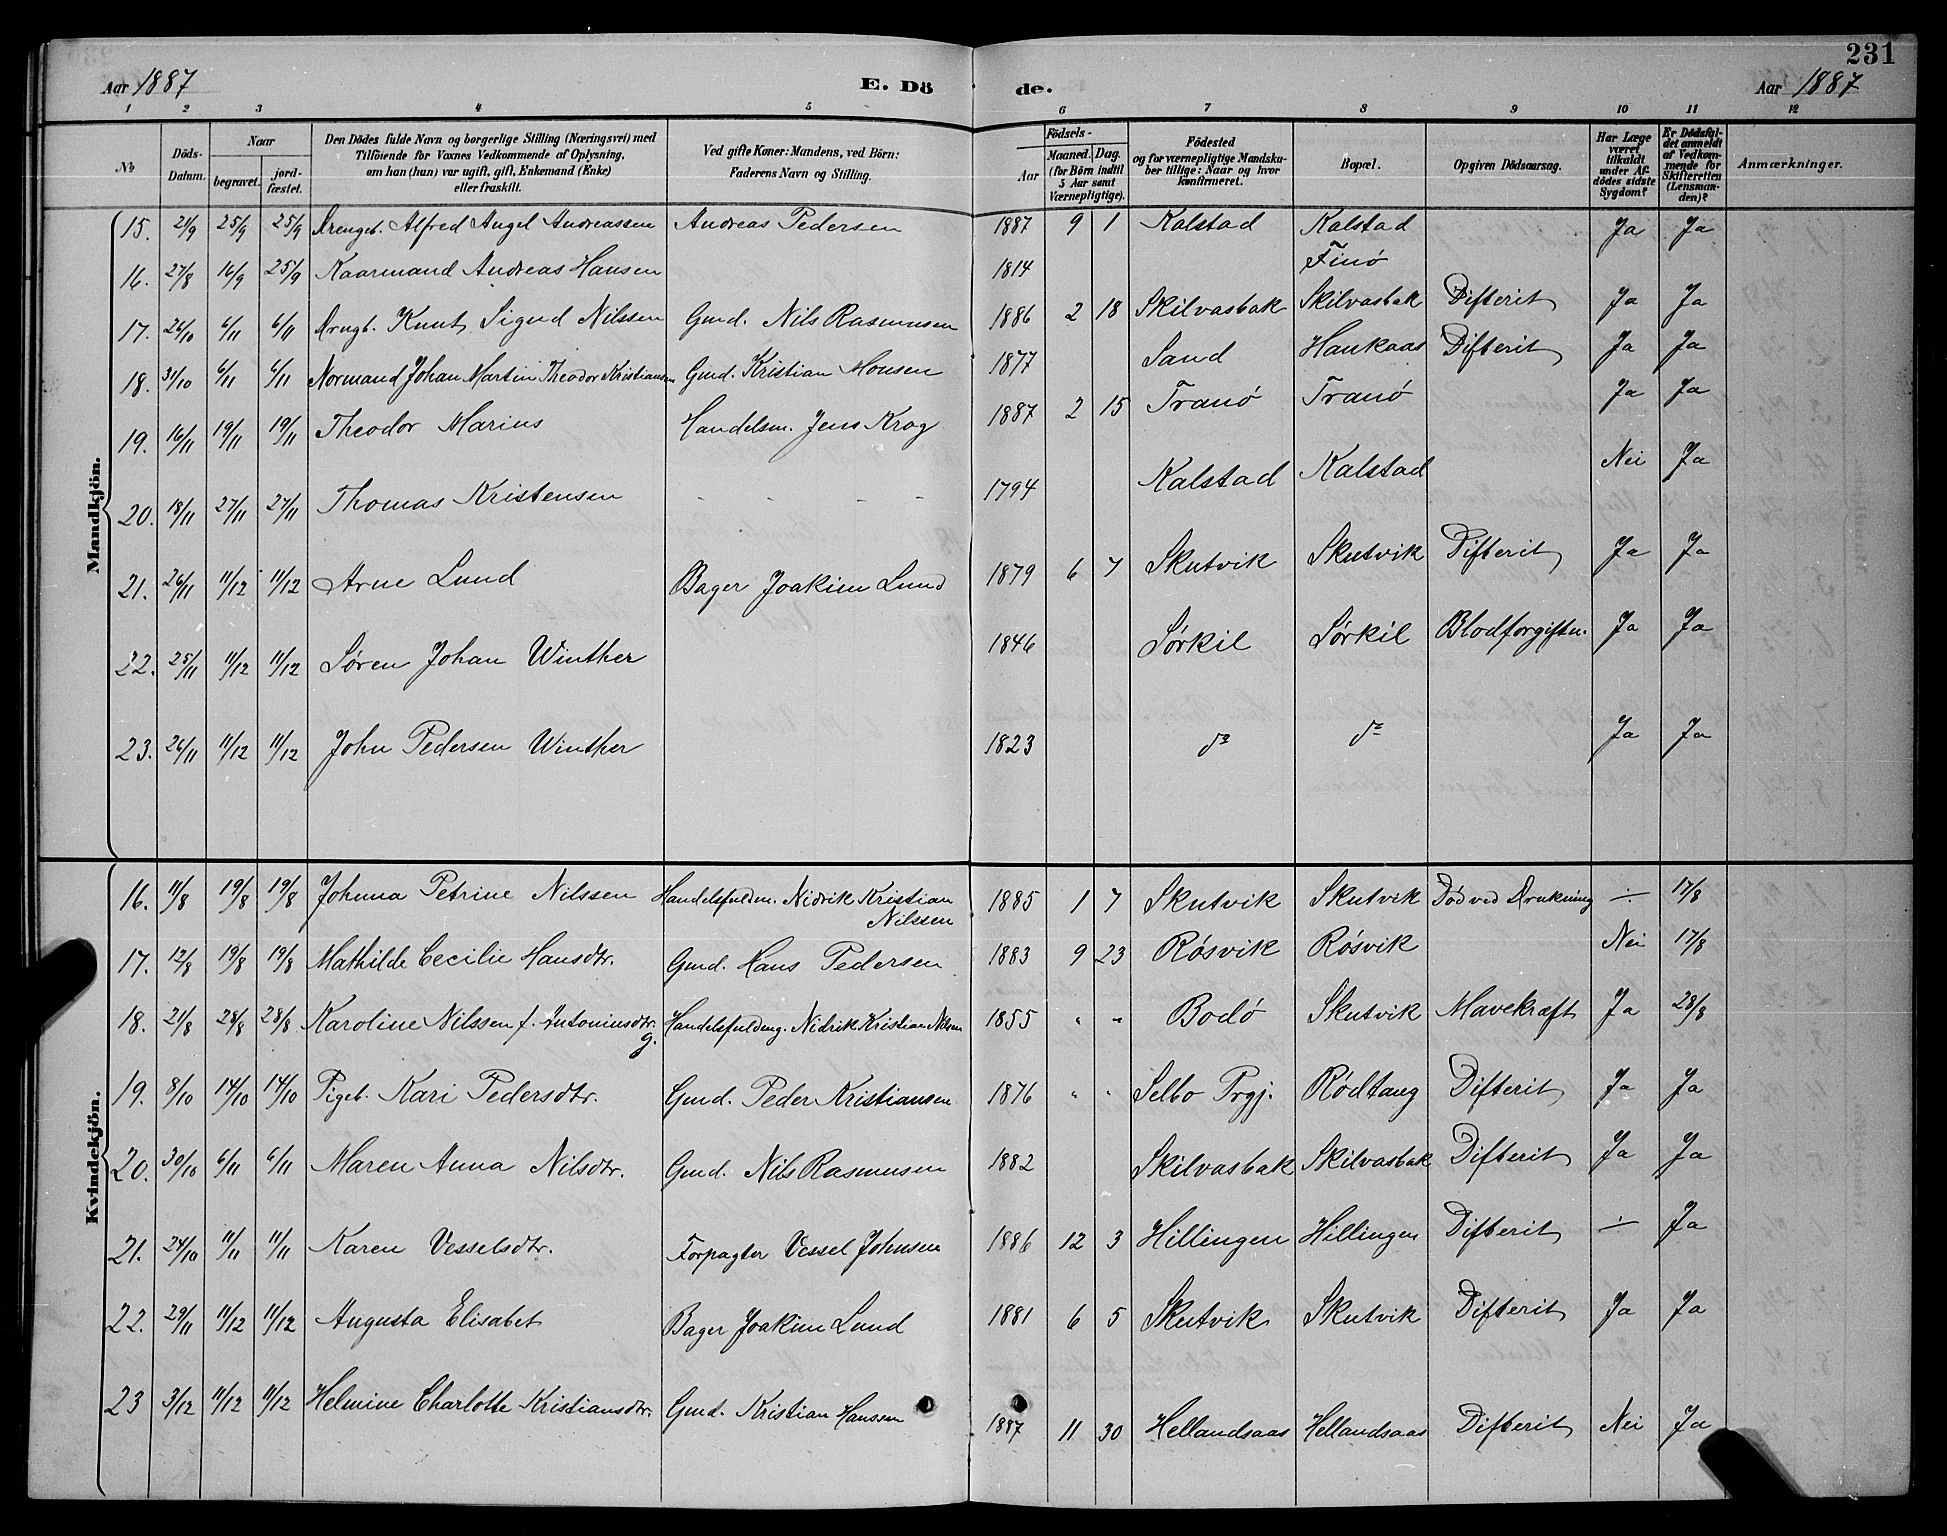 231
Aar 1887 E. Dö de. Aar 1887
1 2 3 4 5 6 7 8 9 10 11 12
№ Döds-Datum. Naar begravet. jordfæstet. Den Dödes fulde Navn og borgerlige Stilling (Næringsvei) med Tilföiende for Voxnes Vedkommende af Oplysning, om han (hun) var ugift, gift, Enkemand (Enke) eller fraskilt. Ved gifte Koner: Mandens, ved Börn: Faderens Navn og Stilling. Födsels- Aar Maaned. Dag. (for Börn indtil 5 Aar samt Værnepligtige). Födested og for værnepligtige Mandskuber tillige: Naar og hvor konfirmeret. Bopæl. Opgiven Dödsaarsag. Har Læge været tilkaldt under Afdödes sidste Sygdom? Er Dödsfaldet anmeldt af Vedkommende for Skifteretten (Lensmanden)? Anmærkninger.
Mandkjön.
15. 21/9 25/9 25/9 Drengeb. Alfred Angel Andreassen Andreas Pedersen 1887 9 1 Kalstad Kalstad Ja Ja
16. 27/8 16/9 25/9 Kaarmand Andreas Hansen 1814 Finø
17. 26/10 6/11 6/11 Drngb. Knut Sigud Nilssen Gmd. Nils Rasmusen 1886 2 18 Skilvasbak Skilvasbak Difterit Ja Ja
18. 31/10 6/11 6/11 Normand Johan Martin Theodor Kristiansen Gmd. Kristian Monsen 1877 Sand Haukaas Difterit Ja Ja
19. 16/11 19/11 19/11 Theodor Marius Handelsm. Jens Krog 1887 2 15 Tranø Tranø Ja Ja
20. 18/11 27/11 27/11 Thomas Kristensen - - - - 1794 Kalstad Kalstad Nei Ja
21. 26/11 11/12 11/12 Arne Lund Bager Joakim Lund 1879 6 7 Skutvik Skutvik Difterit Ja Ja
22. 25/11 11/12 11/12 Søren Johan Winther 1846 Sørkil Sørkil Blodforgiftn. Ja Ja
23. 26/11 11/12 11/12 John Pedersen Winther 1823 do do Ja Ja
Kvindekjön.
16. 11/8 19/8 19/8 Johnna Petrine Nilssen Handelsfuldm. Nidrik Kristian Nilssen 1885 1 7 Skutvik Skutvik Død ved Drukning ÷ 17/8
17. 12/8 19/8 19/8 Mathilde Cecilie Hansdtr. Gmd. Hans Pedersen 1883 9 23 Røsvik Røsvik Nei 17/8
18. 21/8 28/8 28/8 Karoline Nilssen f. Antoniusdtr. g. Handelsfuldmg. Nidrik Kristian Nilsen 1855 " " Bodø Skutvik Mavekræft Ja 28/8
19. 8/10 14/10 14/10 Pigeb. Kari Pedersdtr. Gmd. Peder Kristiansen 1876 " " Selbo Prgj. Rødtang Difterit Ja Ja
20. 30/10 6/11 6/11 Maren Anna Nilsdtr. Gmd. Nils Rasmusen 1882 Skilvasbak Skilvasbak Difterit Ja Ja
21. 24/10 11/11 11/11 Karen Vesselsdtr. Forpagter Vessel Johnsen 1886 12 3 Hillingen Hillingen Difterit ÷ Ja
22. 29/11 11/12 11/12 Augusta Elisabet Bager Joakim Lund 1881 6 5 Skutvik Skutvik Difterit Ja Ja
23 3/12 11/12 11/12 Helmine Charlotte Kristiansdtr. Gmd. Kristian Hanssen 1887 11 30 Hellandsaas Hellandsaas Difterit Nei Ja